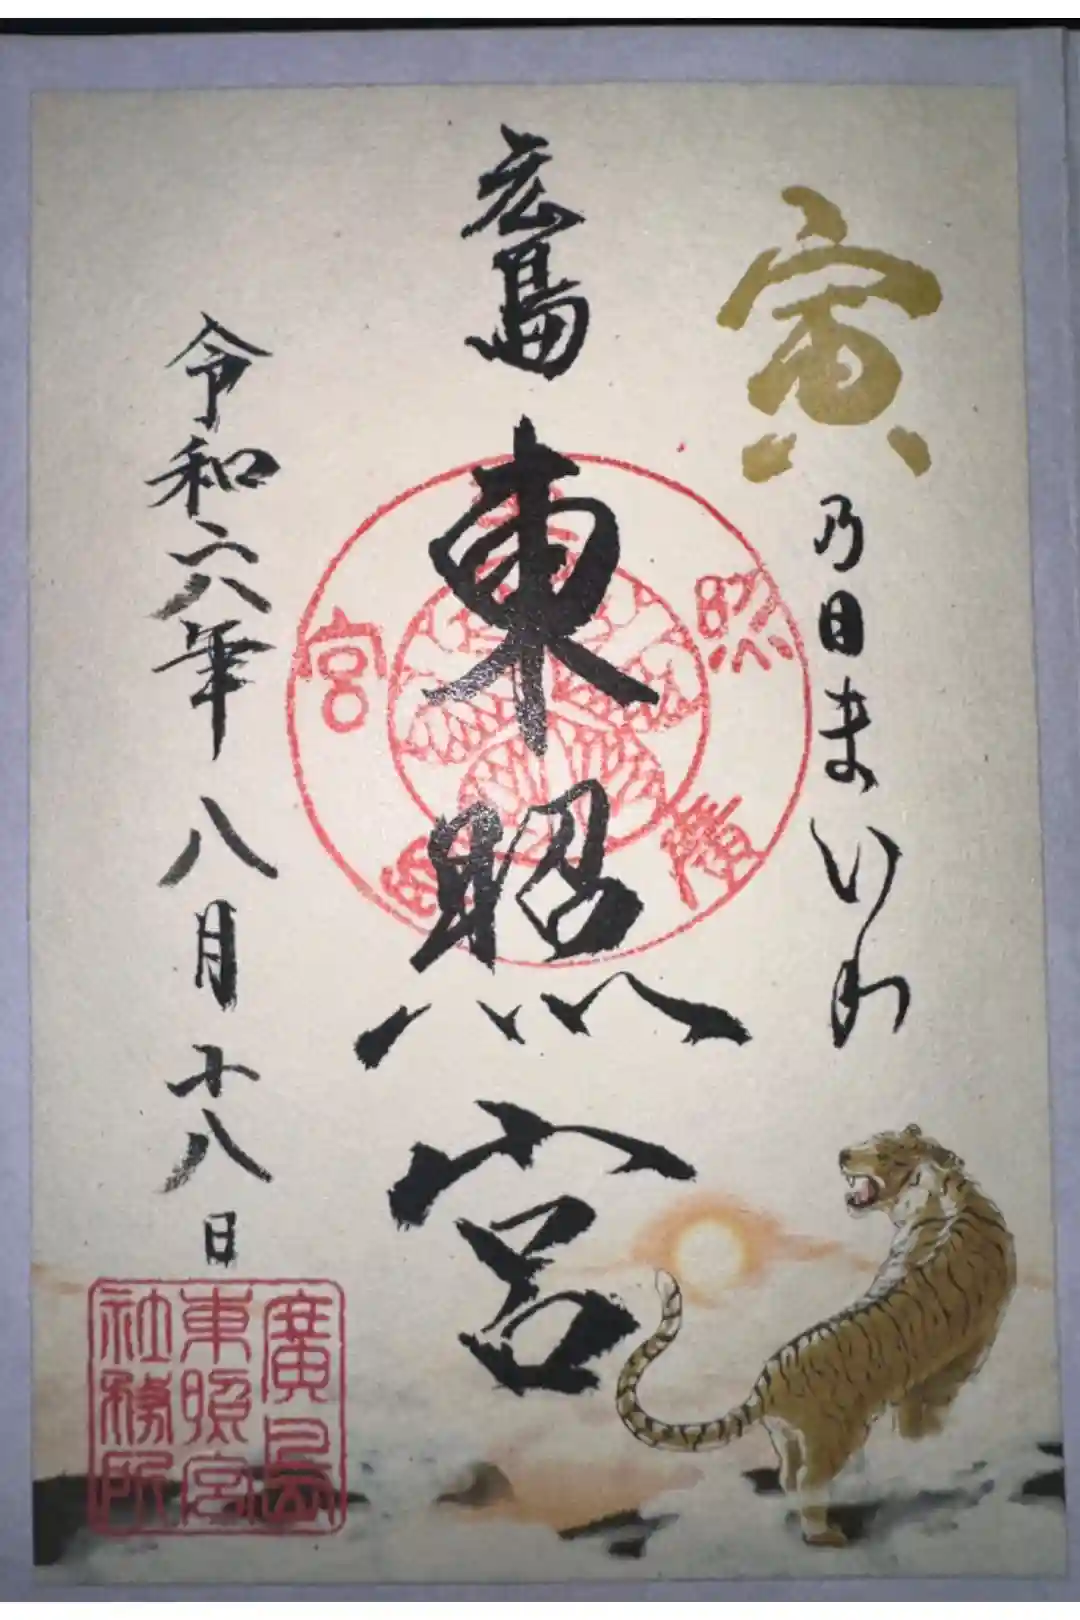 寅乃日まいり
廣島
東照宮
令和六年八月十八日
東照宮廣島
廣島
東照宮
社務所